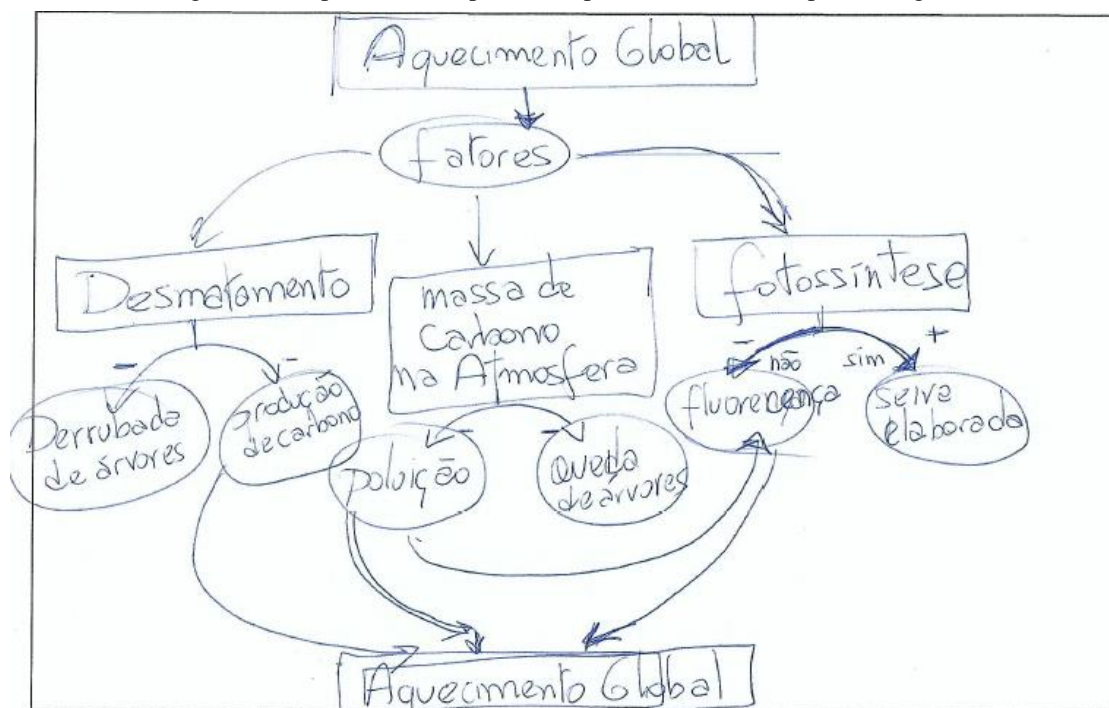 Aquecimento Global
fatores
Desmatamento
massa de
Carbono
na Atmosfera
fotossíntese
- -
- -
- não sim +
Derrubada
de árvores
produção
de carbono
poluição
queda
de árvores
seiva
elaborada
Aquecimento Global